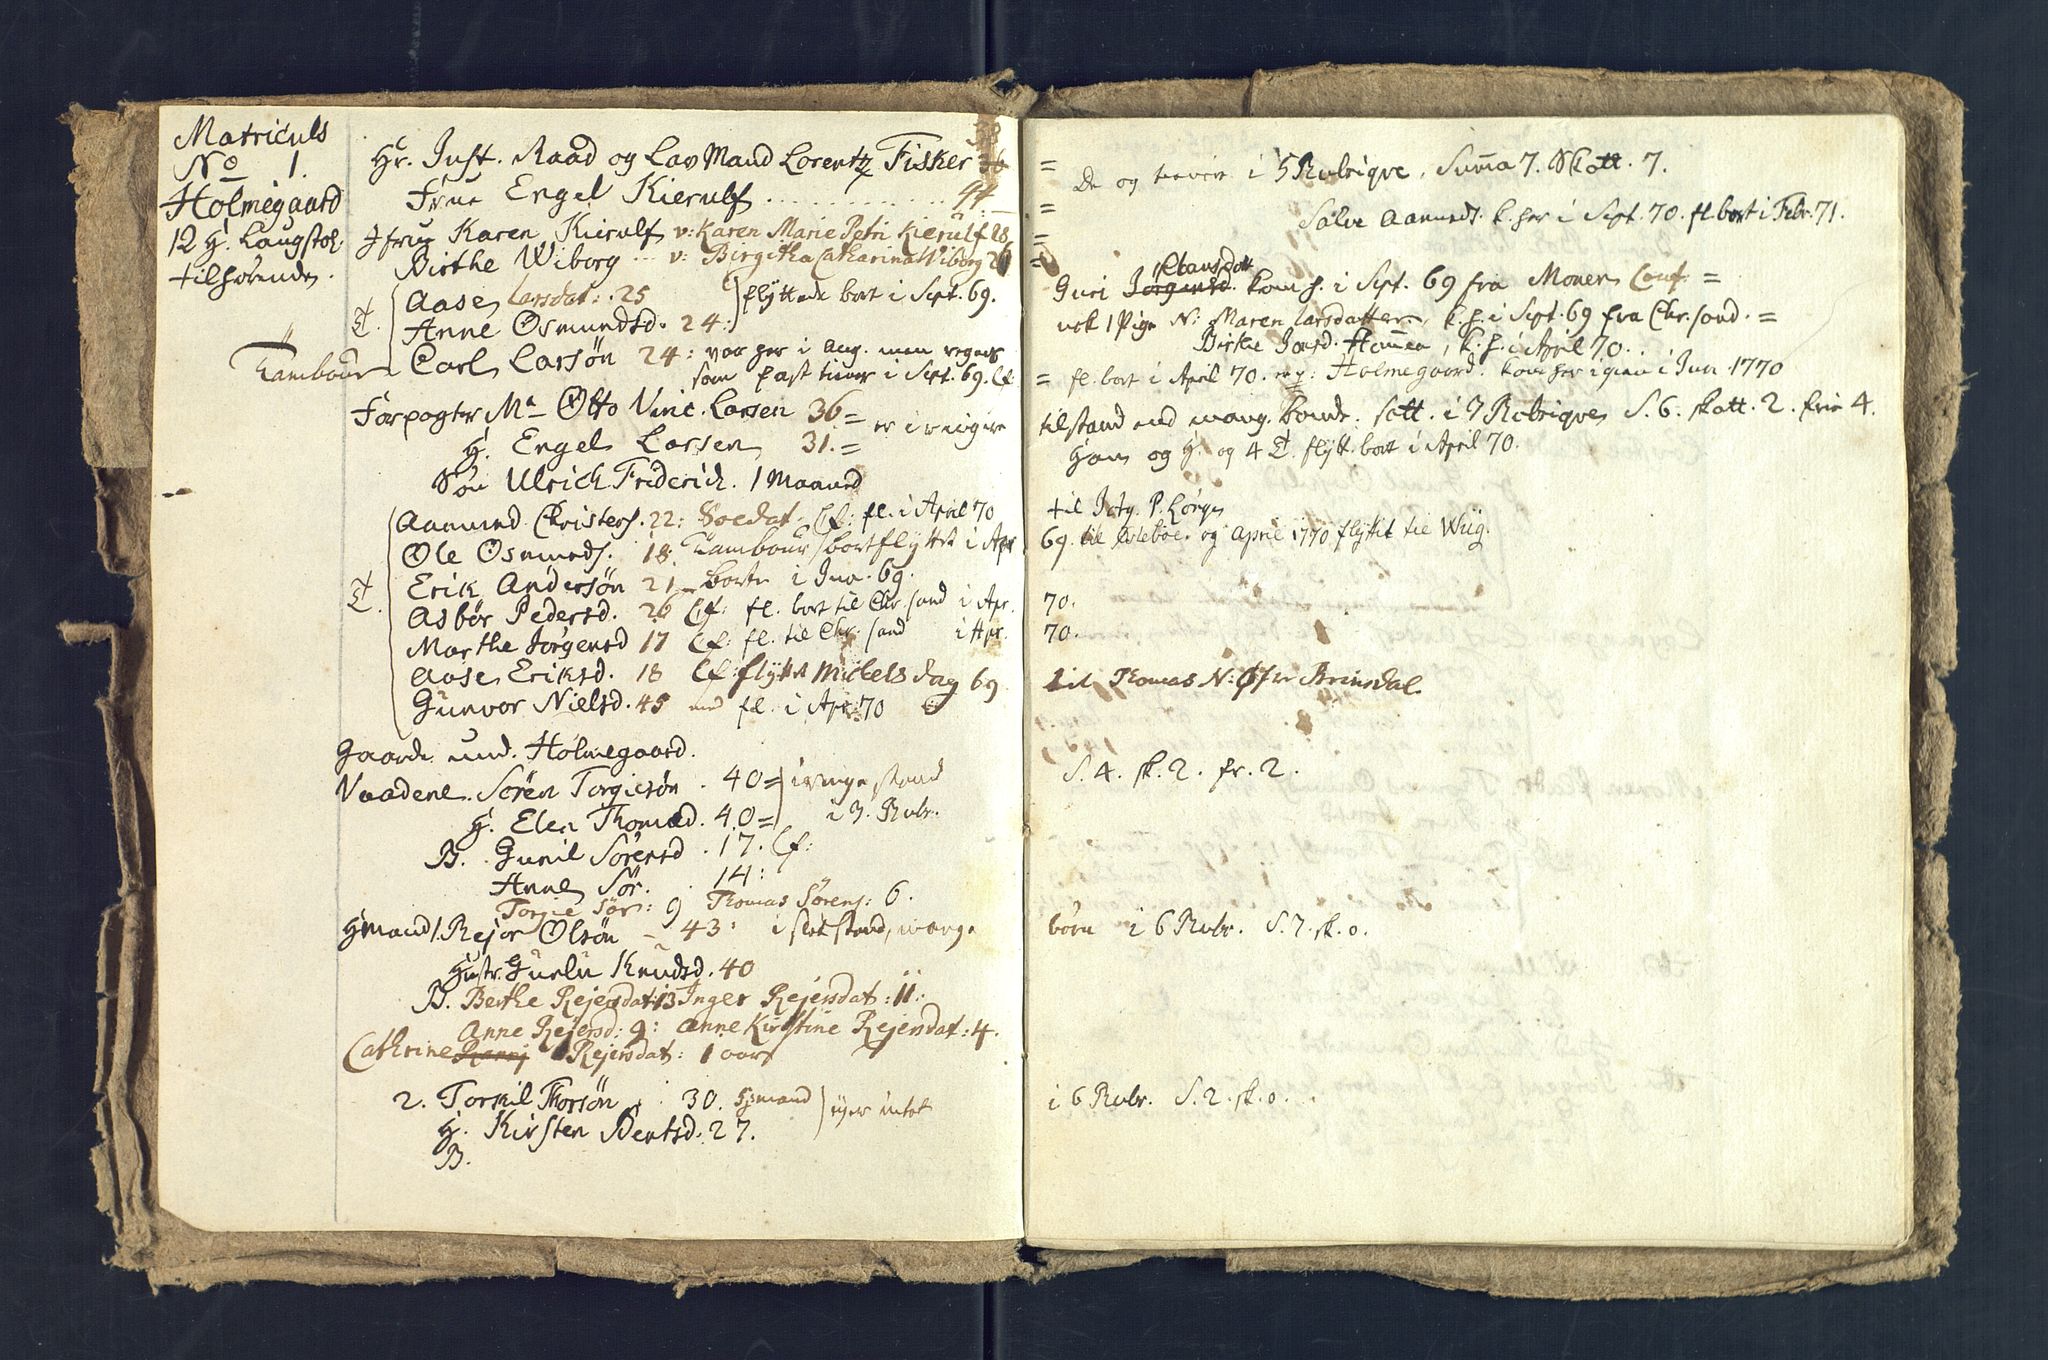 Matriculs
No 1.
Holmegaard
12 H. Laugstol.
tilhørende.
Hr. Just. Raad og Lav Mand Lorentz Fisker 36
Frue Engel Kierulf ............. 44
Jfru Karen Kierulf v: Karen Marie Petri Kierulf 28
Birthe Wiborg ... v: Birgitha Catharina Wiborg 26
T. Aase Larsdat: 25 flyttede bort i Sept. 69.
Anne Osmundsd. 24:
Tambour Carl Larsøn 24: var her i Aug. men regnes
som fast tiener i Sept. 69. Cf
Forpagter Mr Otto Vinc. Larsen 36 =
H. Engel Larsen 31. = er i ringe
Søn Ulrich Friderich. 1 Maaned
T. Aamund Christens. 22: Soldat Cf: fl. i April 70
Ole Osmunds. 18. Tambour bortflyttet i Apr
Erik Andersøn 21 borte i Jun. 69.
Asbør Pedersd. 26 Cf: fl. bort til Chr.sand i Apr.
Marthe Jørgensd 17 Cf: fl. til Chr.sand i Apr.
Aase Eriksd. 18 Cf: flytt Mickels dag 69
Gunvor Nielsd. 45 fl. i Apr: 70
Gaarde und. Holmegaard.
Vaadene. Søren Torgiesøn . 40 = i ringe stand
H. Elen Thomasd. 40 = i 3. Rubr.
B. Gunil Sørensd . 17. Cf:
Anne Sør. . 14:
Torgie Sør: 9 Thomas Sørens: 6.
Hmand 1. Rejor Olsøn - 43: i slet stand, mange
Hustr. Guelu Knudsd. 40
B. Berthe Rejersdat: 13 Inger Rejersdat: 11:
Anne Rejersd: 9: Anne Kirstine Rejersdat: 4.
Cathrine Rejersdat: 1 aar
2. Torkil Thorsøn . 30. Hsmand ejer intet
H. Kirsten Bentsd. 27.
B.
= De og tienere i 5 Rubriqve. Summa 7. Skatt. 7.
= Salve Aamunds. k. her i Sept. 70. fl. bort i Febr. 71.
Guri Clausdatt kom h. i Sept. 69 fra Monen Conf. =
nok 1 Pige N: Maren Larsdatter, k. h. i Sept. 69 fra Chr.sand. =
Birthe Jonsd. Hammen, k. h. i April 70.
= fl. bort i April 70. Holmegaard. kom her igien i Jun 1770
tilstand med mang. bonde. satt. i 7 Rubriqve S. 6. skatt. 2. frie 4.
Han og H. og 4 T. flytt. bort i April 70.
til P. Lørgs
69. til og April 1770 flyttet til Wiig.
70.
70.
til Thomas N: Øfre Brinsdal.
S. 4. sk. 2. fr. 2.
børn i 6 Rubr. S. 7. sk. 0.
i 6 Rubr. S. 2. sk. 0.